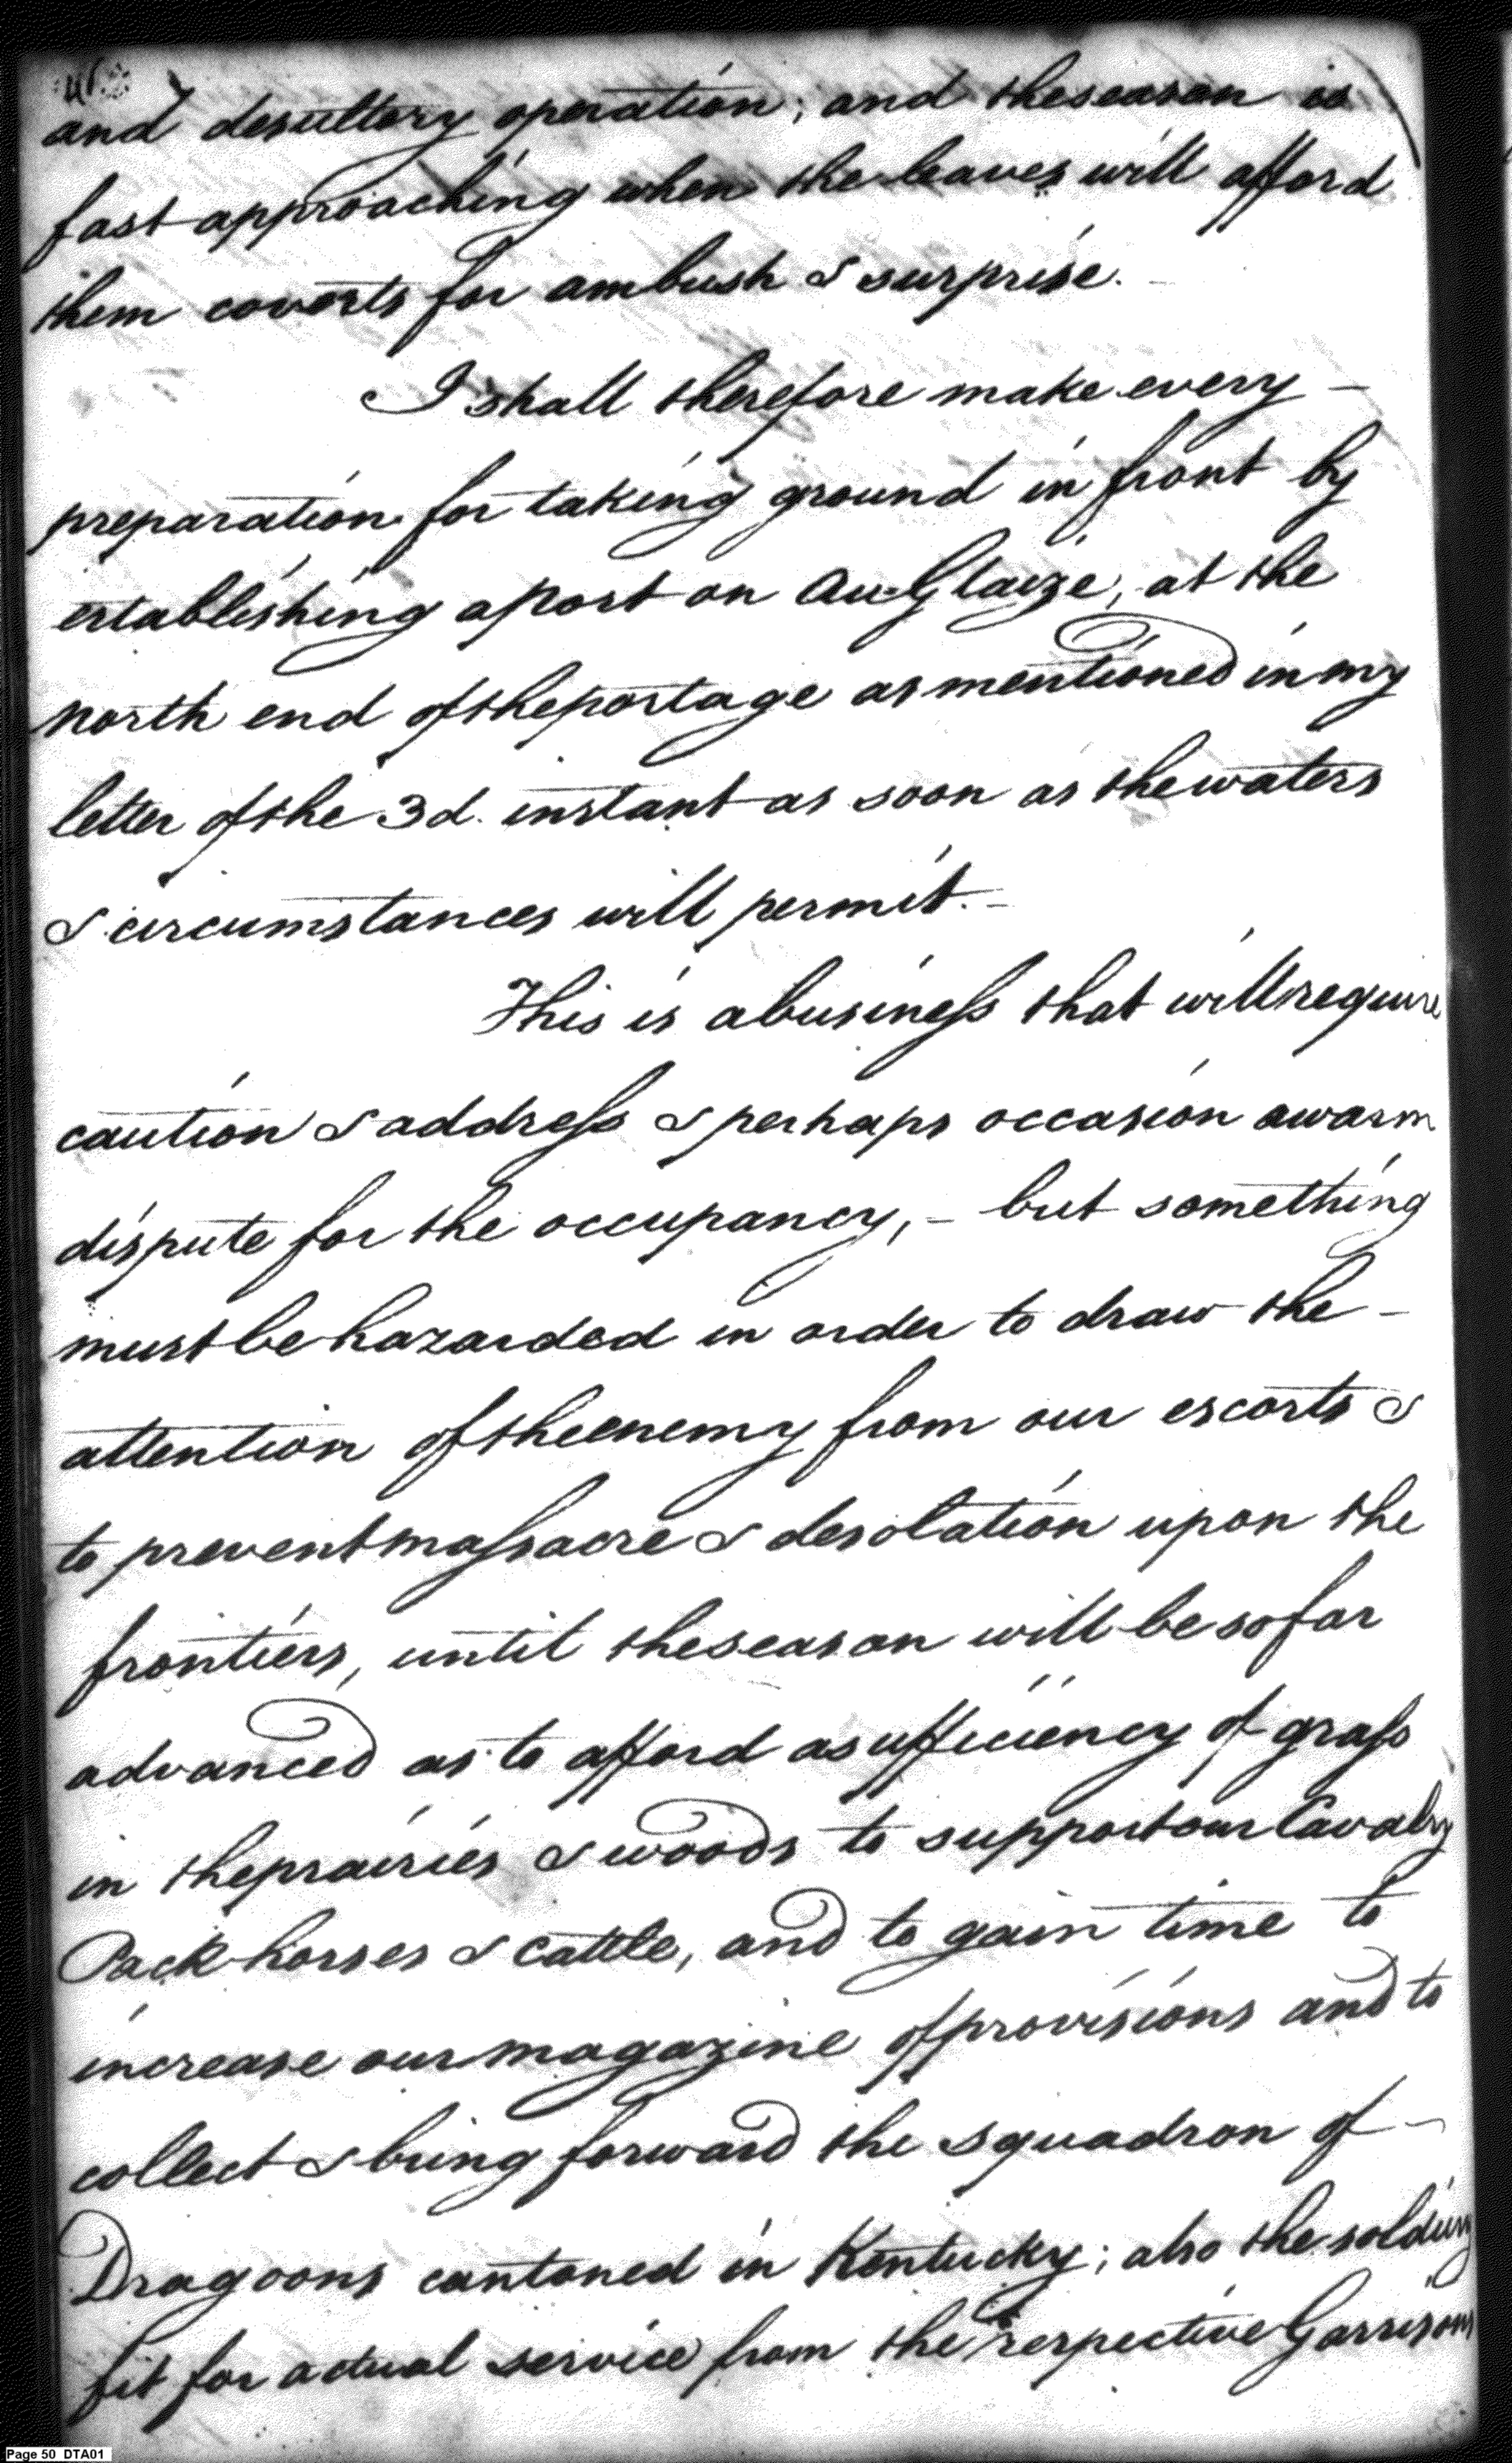 and desultory operation; and the season is
fast approaching when the leaves will afford
them coverts for ambush & surprise.
I shall therefore make every –
preparation for taking ground in front by
establishing a Post on Au Glaize, at the
north end of the portage as mentioned in my
letter of the 3d. instant as soon as the waters
& circumstances will permit. –
This is a business that will require
caution & address & perhaps occasion a warm
dispute for the occupancy, – but something
must be hazarded in order to draw the –
attention of the enemy from our escorts &
to prevent massacre & desolation upon the
frontiers, until the season will be so far
advanced as to afford a sufficiency of grass
in the prairies & woods to support our Cavalry
Pack-horses & cattle, and to gain time to
increase our magazine of provisions and to
collect & bring forward the squadron of –
Dragoons cantoned in Kentucky; also the soldiery
fit for actual service from the respective Garrisons
Page 50 DTA01